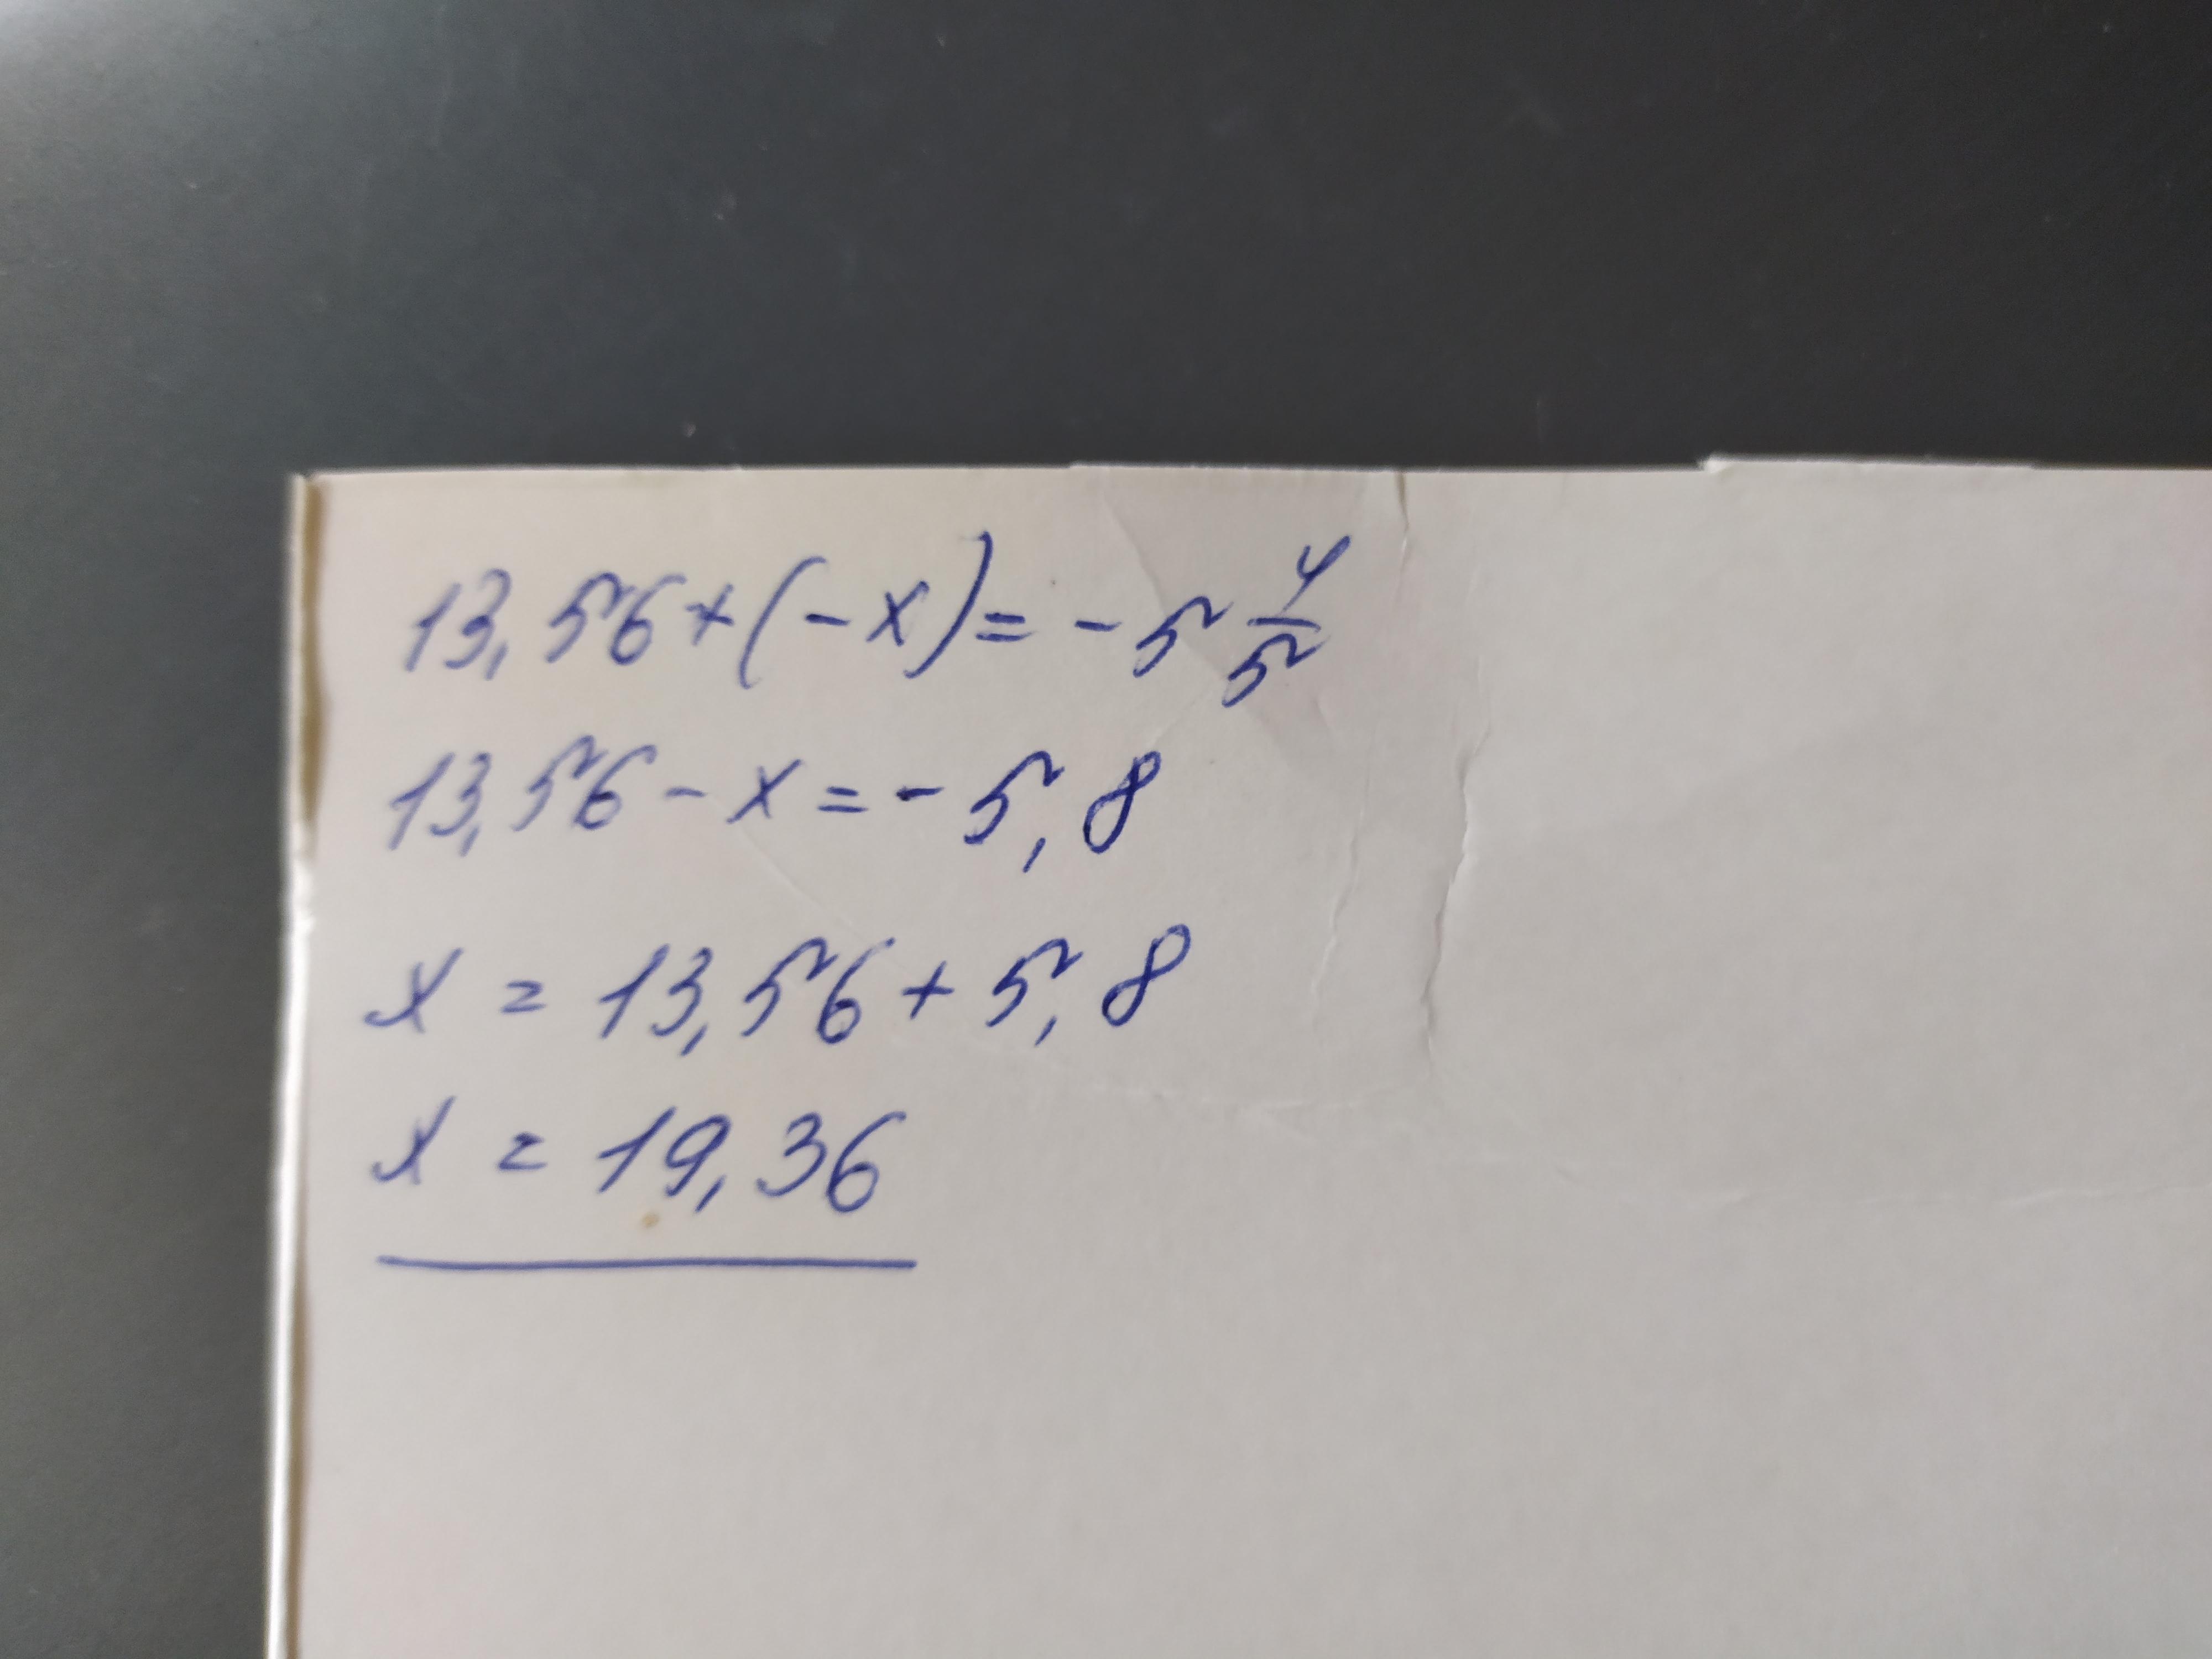 13,56+(-x)=-5 4/5
13,56-x=-5,8
x=13,56+5,8
x=19,36